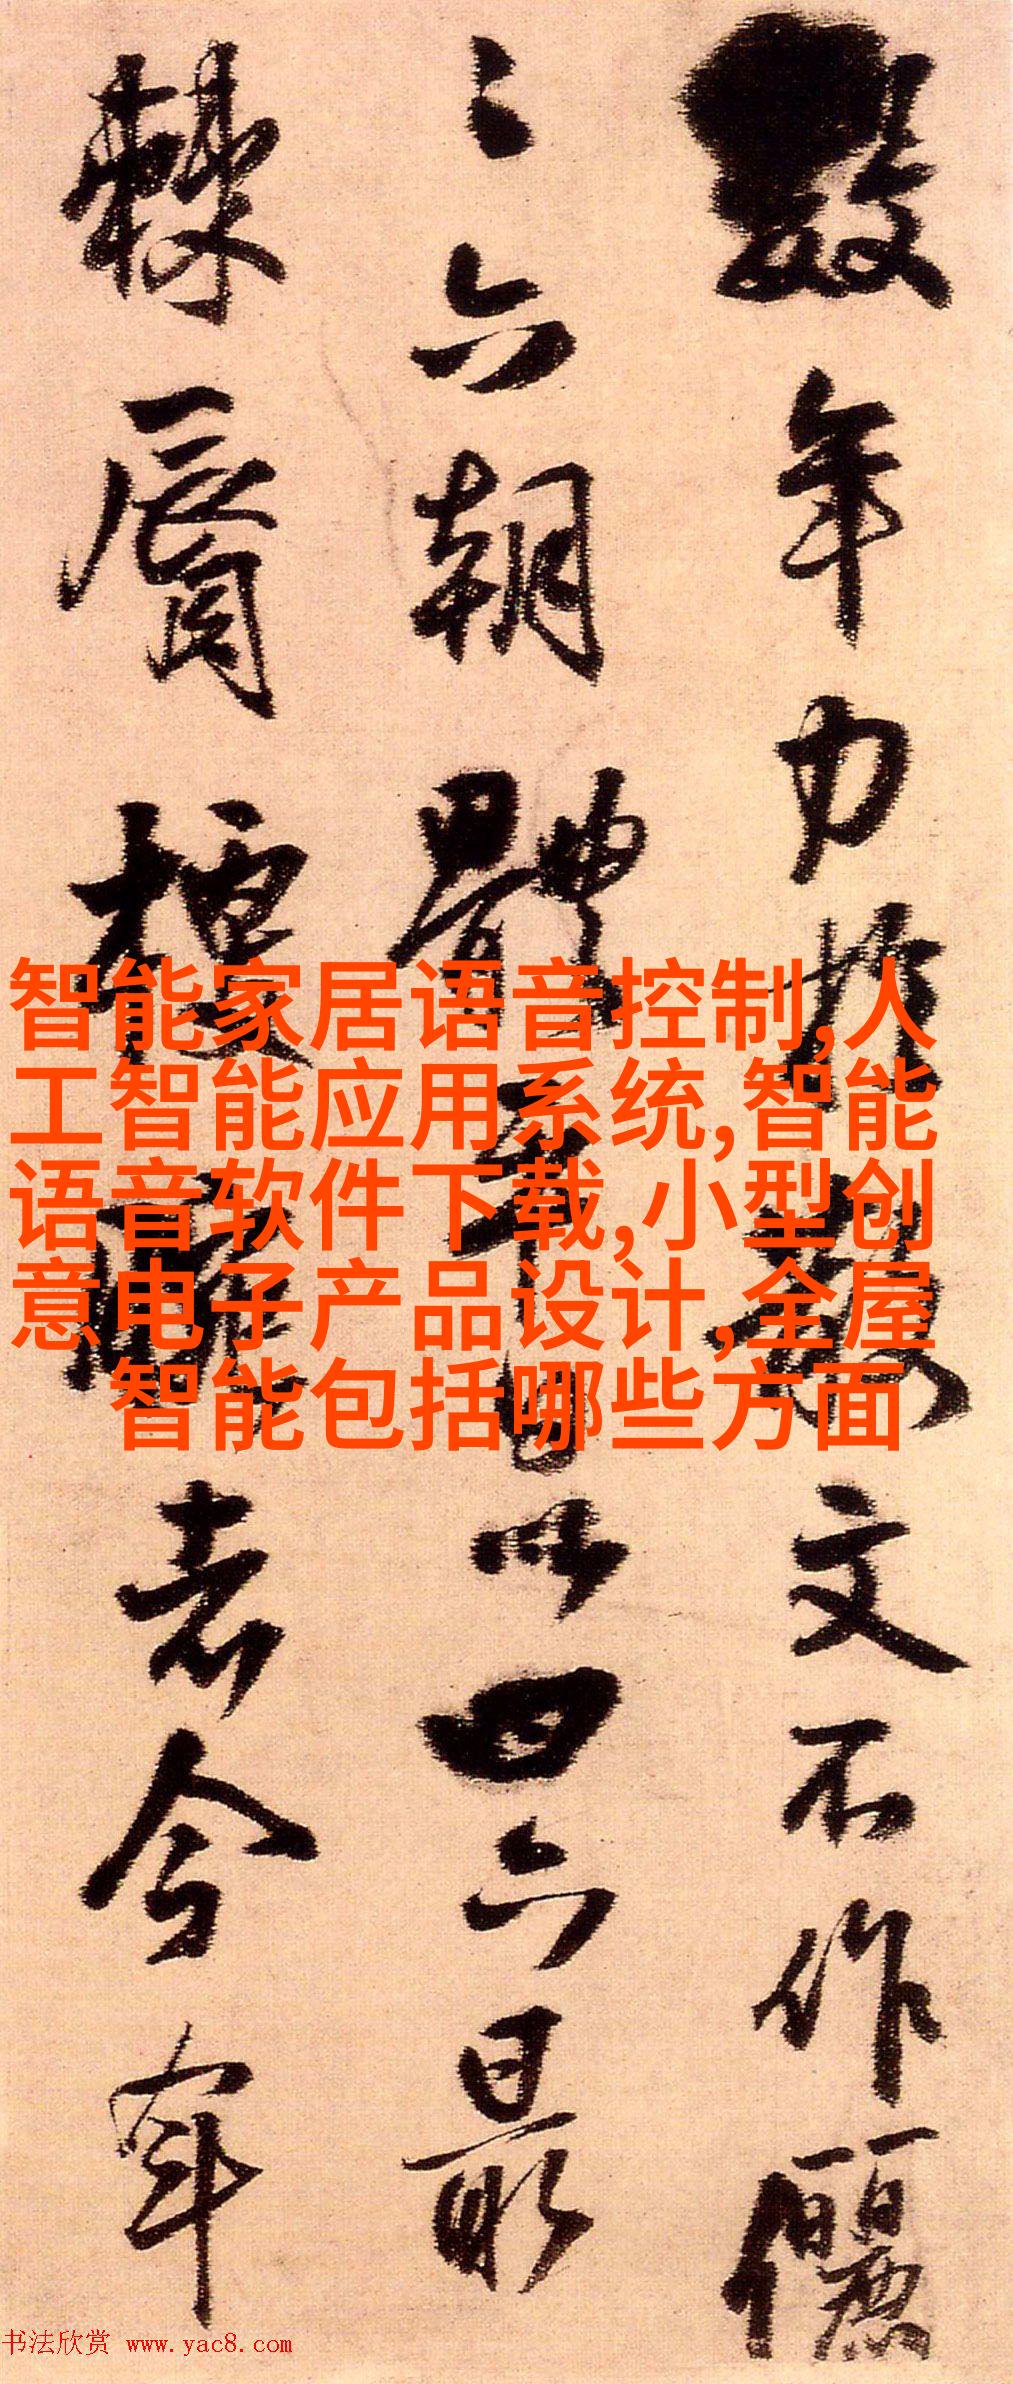 數年力於文不作儷
々六朝體平日以四六最
棘脣梗者今年
智能家居语音控制,人
工智能应用系统,智能
语音软件下载,小型创
意电子产品设计,全屋
智能包括哪些方面
书法欣赏 www.yac8.com